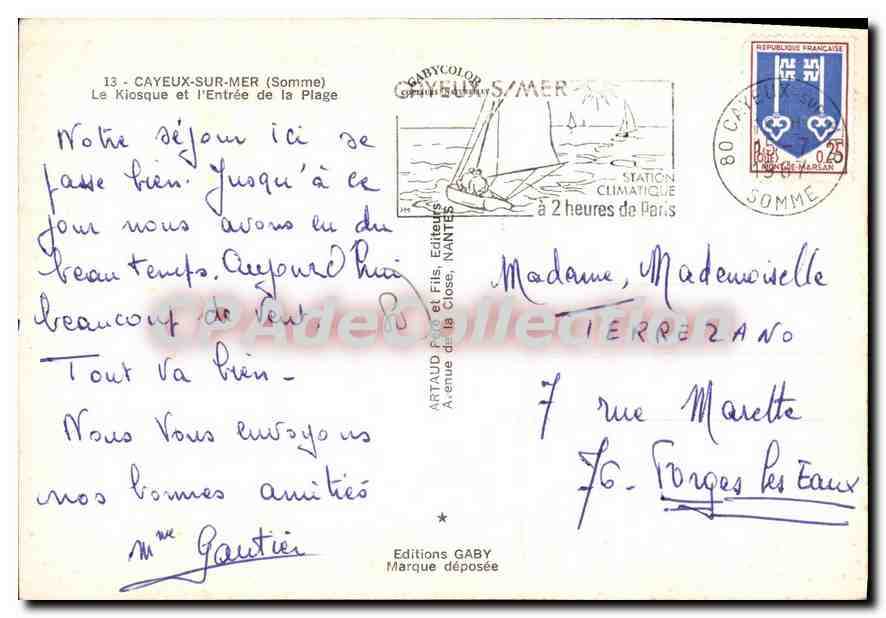 13 - CAYEUX-SUR-MER (Somme)
Le Kiosque et l'Entrée de la Plage
Notre séjour ici se
passe bien. Jusqu'à ce
jour nous avons eu du
beau temps. Aujourd'hui
beaucoup de vent.
Tout va bien -
Nous vous envoyons
nos bonnes amitiés
Mme Gautier
80
GABYCOLOR
CAYEUX S/MER
STATION
CLIMATIQUE
à 2 heures de Paris
RÉPUBLIQUE FRANÇAISE
0,25
MONT-DE-MARSAN
80 CAYEUX-SUR
SOMME
ARTAUD Père et Fils, Editeurs
Avenue de la Close, NANTES
Madame, Mademoiselle
TERREZANO
7 rue Marette
76 - Forges les Eaux
Editions GABY
Marque déposée
CPAdeCollection